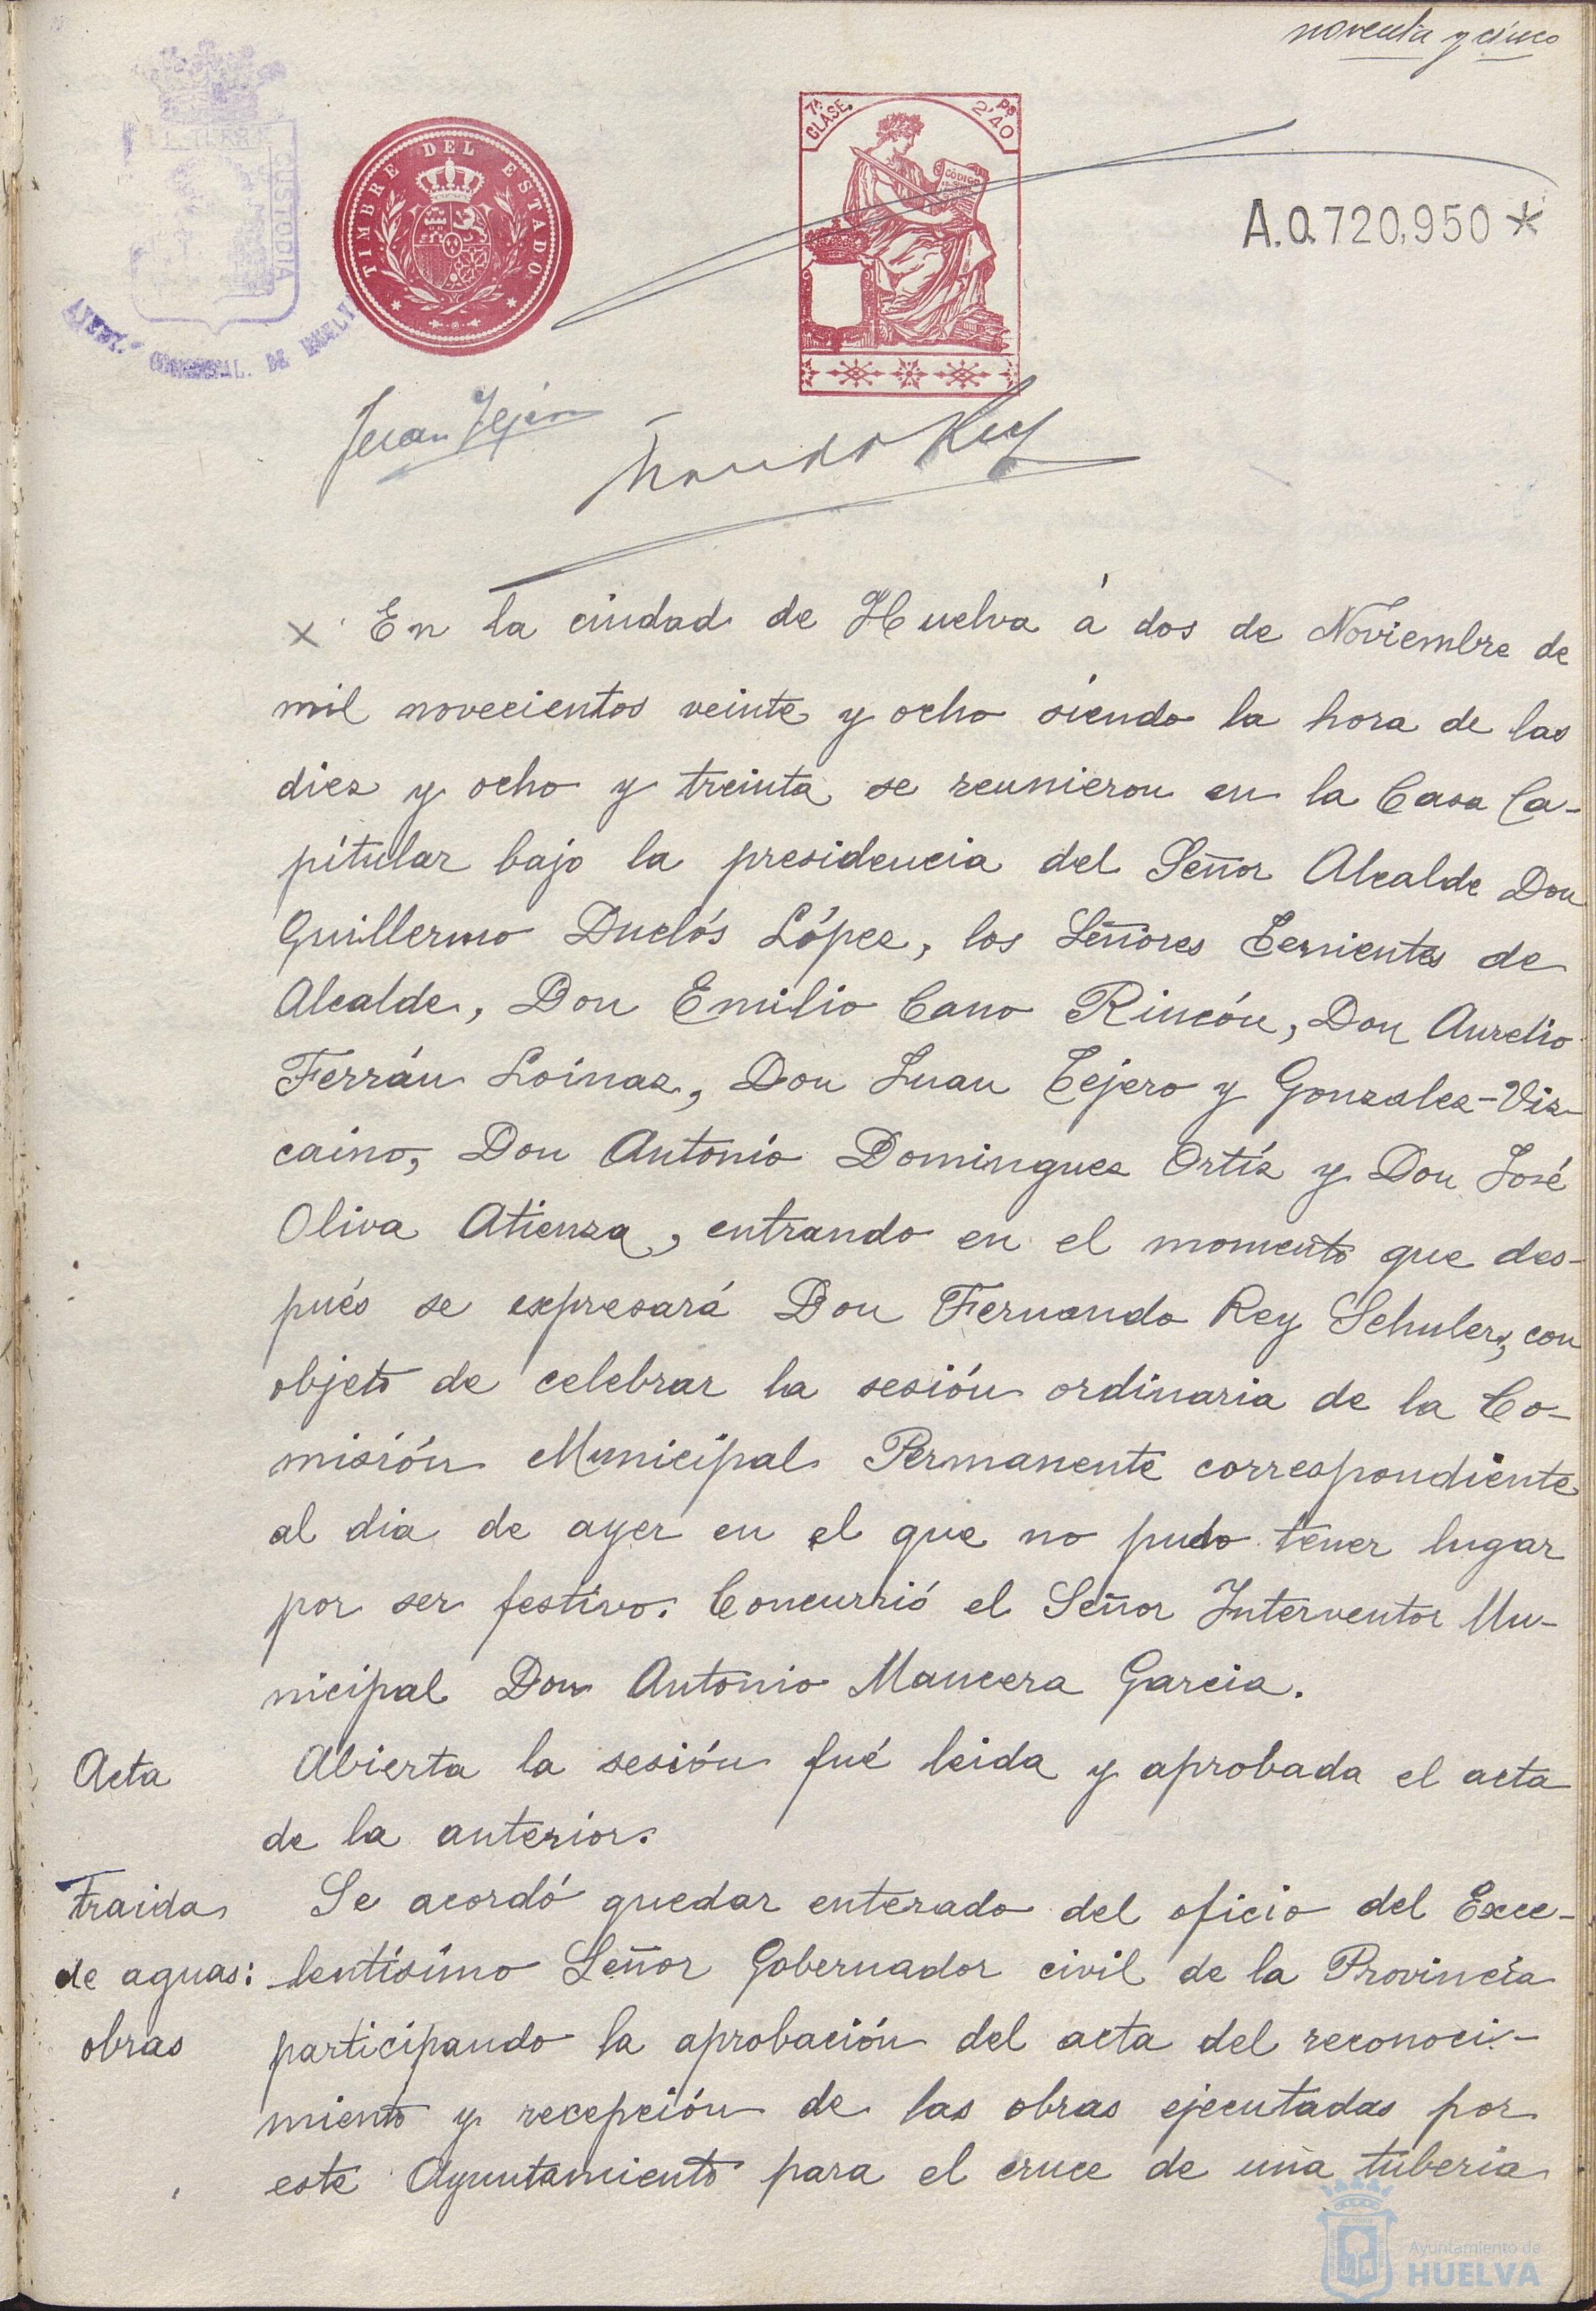 noventa y cinco
CUSTODIA
AYUNT. DE HUELVA
TIMBRE DEL ESTADO
7ª CLASE.
Ps 2'40
CÓDIGO
A.0.720,950*
Juan Tejero
En la ciudad de Huelva á dos de Noviembre de
mil novecientos veinte y ocho siendo la hora de las
diez y ocho y treinta se reunieron en la Casa Ca-
pitular bajo la presidencia del Señor Alcalde Don
Guillermo Duclós López, los Señores Tenientes de
Alcalde, Don Emilio Cano Rincón, Don Aurelio
Ferrán Loinaz, Don Juan Tejero y Gonzalez-Viz-
caino, Don Antonio Dominguez Ortíz y Don José
Oliva Atienza, entrando en el momento que des-
pués se expresará Don Fernando Rey Schuler, con
objeto de celebrar la sesión ordinaria de la Co-
misión Municipal Permanente correspondiente
al dia de ayer en el que no pudo tener lugar
por ser festivo. Concurrió el Señor Interventor Mu-
nicipal Don Antonio Mancera Garcia.
Acta Abierta la sesión fué leida y aprobada el acta
de la anterior.
Traida Se acordó quedar enterado del oficio del Exce-
de aguas: lentísimo Señor Gobernador civil de la Provincia
obras participando la aprobación del acta del reconoci-
miento y recepción de las obras ejecutadas por
este Ayuntamiento para el cruce de una tuberia
Ayuntamiento de
HUELVA